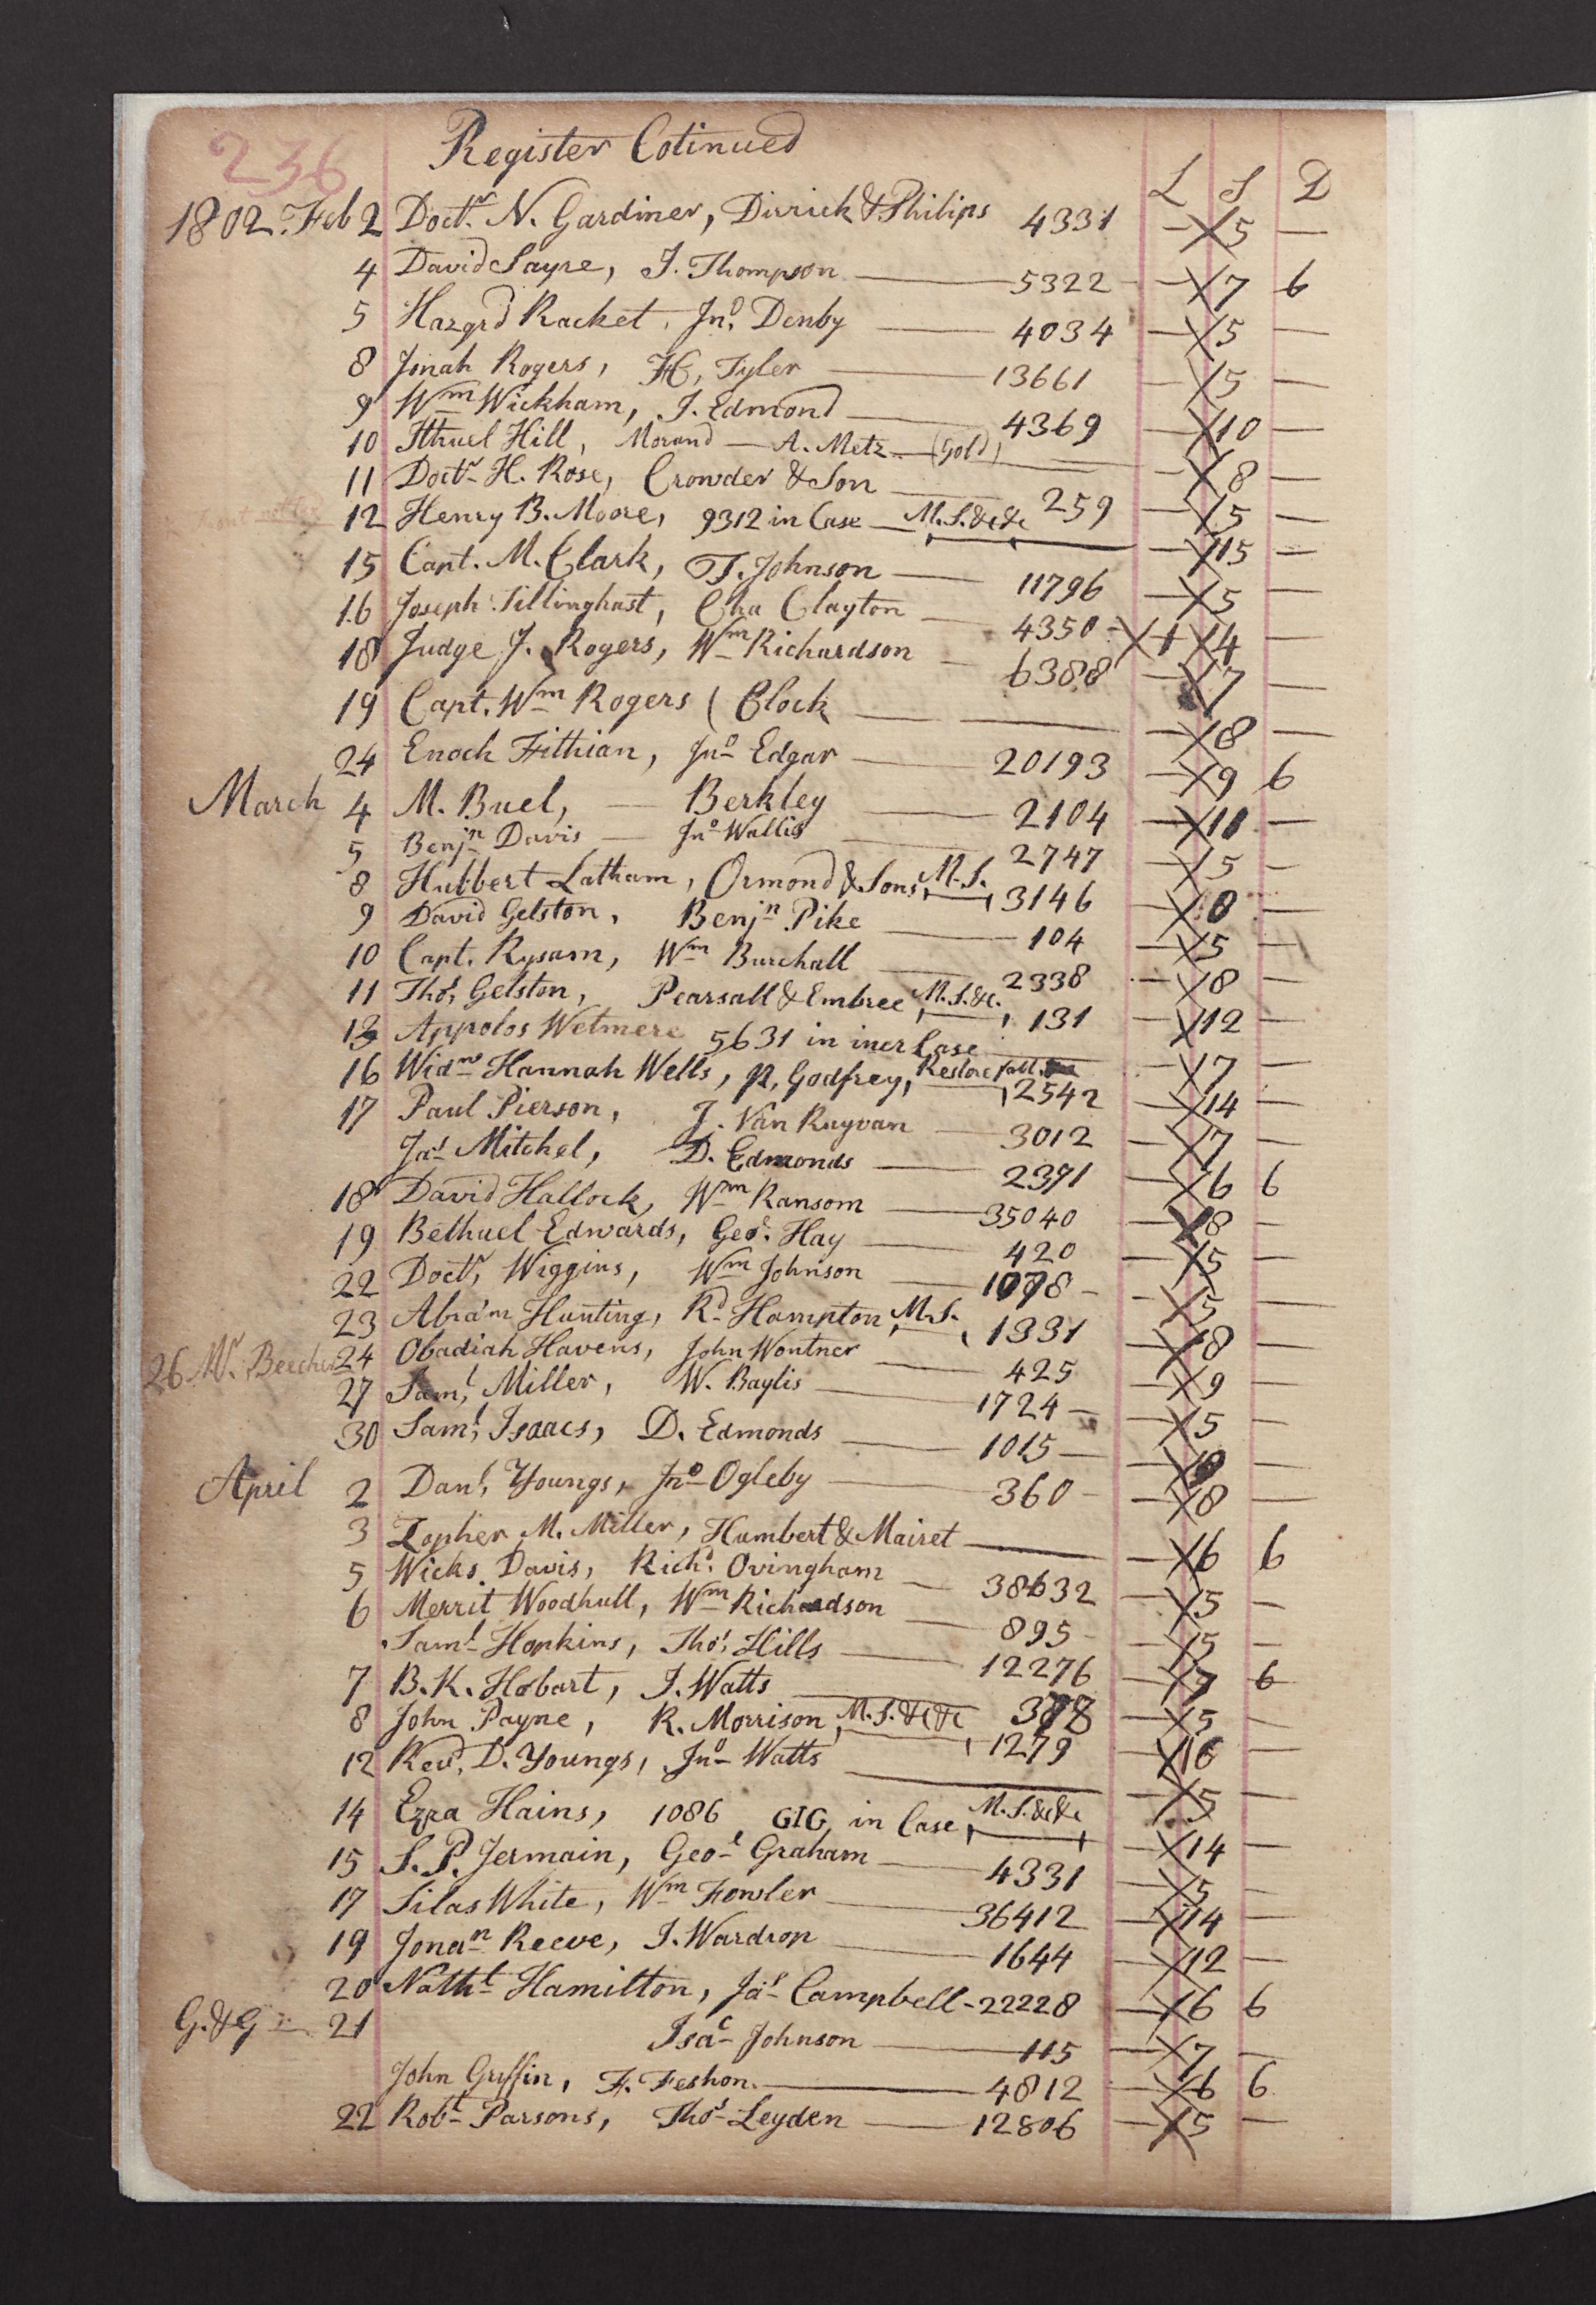 236
Register Cotinued
L S D
1802. Feb 2 Doctr. N. Gardiner, Dirrick & Philips 4331 — 5 —
4 David Sayre, J. Thompson — 5322 — 7 6
5 Hazard Racket, Jno. Denby — 4034 — 5 —
8 Jonah Rogers, H, Tyler — 13661 — 5 —
9 Wm Wickham, J. Edmond — 4369 — 10 —
10 Ithuel Hill, Morand — A. Metz — (Gold) — 8 —
11 Doctr H. Rose, Crowder & Son — 259 — 5 —
12 Henry B. Moore, 9312 in Case — M. S. &c &c — 15 —
15 Capt. M. Clark, T. Johnson — 11796 — 5 —
16 Joseph Tillinghast, Cha Clayton — 4350 - 1 4 —
18 Judge J. Rogers, Wm Richardson — 6388 — 7 —
19 Capt. Wm Rogers ( Clock — 18 —
24 Enoch Fithian, Jno Edgar — 20193 — 9 6
March 4 M. Buel, — Berkley — 2104 — 11 —
5 Benjn Davis — Jno Wallis — 2747 — 5 —
8 Hubbert Latham, Ormond & Sons, M. S. 3146 — 8 —
9 David Gelston, Benjn Pike — 104 — 5 —
10 Capt. Rysam, Wm Burchall — 2338 — 18 —
11 Thos, Gelston, Pearsall & Embree, M. S. &c. 131 — 12 —
13 Appolos Wetmere 5631 in iner Case — 7 —
16 Widw Hannah Wells, R, Godfrey, Restore 2542 — 14 —
17 Paul Pierson, J. Van Ruyvan — 3012 — 7 —
Jas Mitchel, D. Edmonds — 2391 — 6 6
18 David Hallock, Wm Ransom — 35040 — 8 —
19 Bethuel Edwards, Geo. Hay — 420 — 5 —
22 Doctr, Wiggins, Wm Johnson — 1078 — 5 —
23 Abram Hunting, Rd Hampton, M. S. 1331 — 18 —
26 Mr. Beecher 24 Obadiah Havens, John Wontner — 425 — 9 —
27 Saml, Miller, W. Baylis — 1724 — 5 —
30 Saml, Isaacs, D. Edmonds — 1015 — —
April 2 Danl, Youngs, Jno Ogleby — 360 — 18 —
3 Zopher M. Miller, Humbert & Mairet — 6 6
5 Wicks Davis, Richd. Ovingham — 38632 — 5 —
6 Merrit Woodhull, Wm Richardson — 895 — 5 —
Saml Hopkins, Thos, Hills — 12276 — 7 6
7 B. K. Hobart, J. Watts — 378 — 5 —
8 John Payne, R. Morrison, M. S. &c &c 1279 — 16 —
12 Revd, D. Youngs, Jno Watts — 5 —
14 Ezra Hains, 1086, GIG, in Case, M. S. &c &c — 14 —
15 S. P. Jermain, Geoe Graham — 4331 — 5 —
17 Silas White, Wm Fowler — 36412 — 14 —
19 Jonan Reeve, J. Wardrop — 1644 — 12 —
20 Nathl Hamilton, Jas Campbell - 22228 — 6 6
G. & G 21 Isac Johnson — 115 — 7 —
John Griffin, F. Feshon. — 4812 — 6 6
22 Robt Parsons, Thos Leyden — 12806 — 5 —